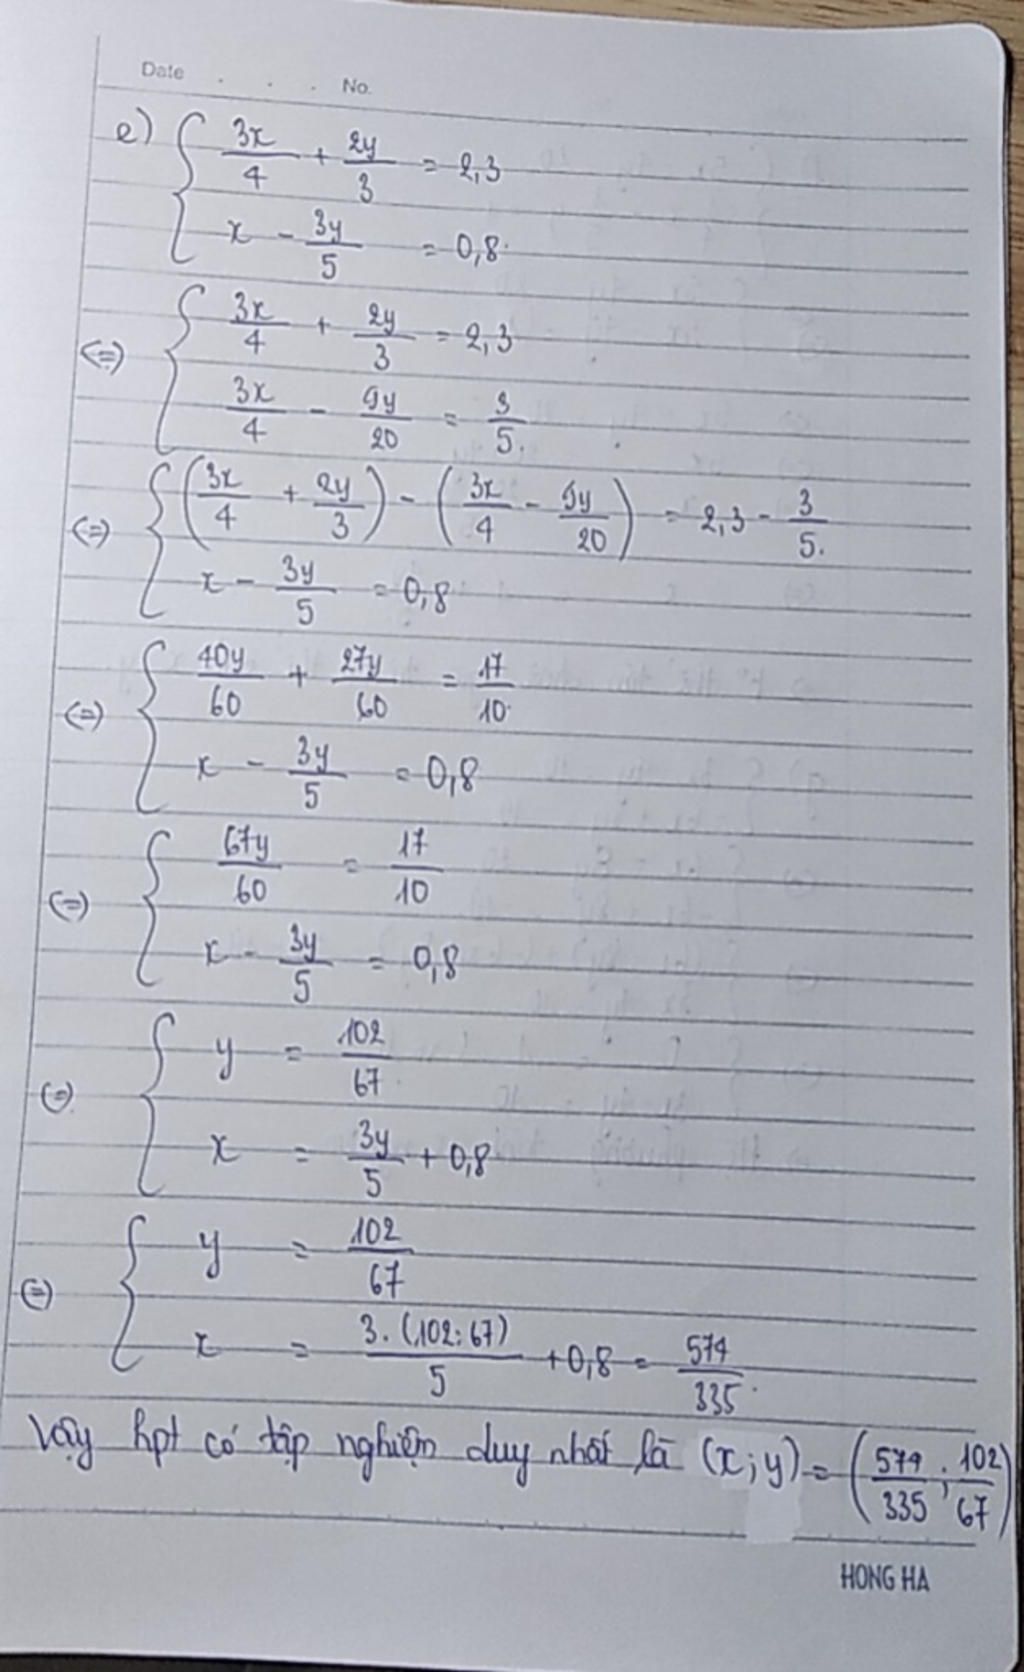 Date . . . No.
e) { 3x/4 + 2y/3 = 2,3
x - 3y/5 = 0,8
(=) { 3x/4 + 2y/3 = 2,3
3x/4 - 9y/20 = 3/5.
(=) { (3x/4 + 2y/3) - (3x/4 - 9y/20) = 2,3 - 3/5.
x - 3y/5 = 0,8
(=) { 40y/60 + 27y/60 = 17/10
x - 3y/5 = 0,8
(=) { 67y/60 = 17/10
x - 3y/5 = 0,8
(=) { y = 102/67
x = 3y/5 + 0,8
(=) { y = 102/67
x = 3.(102:67)/5 + 0,8 = 574/335.
Vậy hpt có tập nghiệm duy nhất là (x;y) = (574/335 ; 102/67)
HONG HA